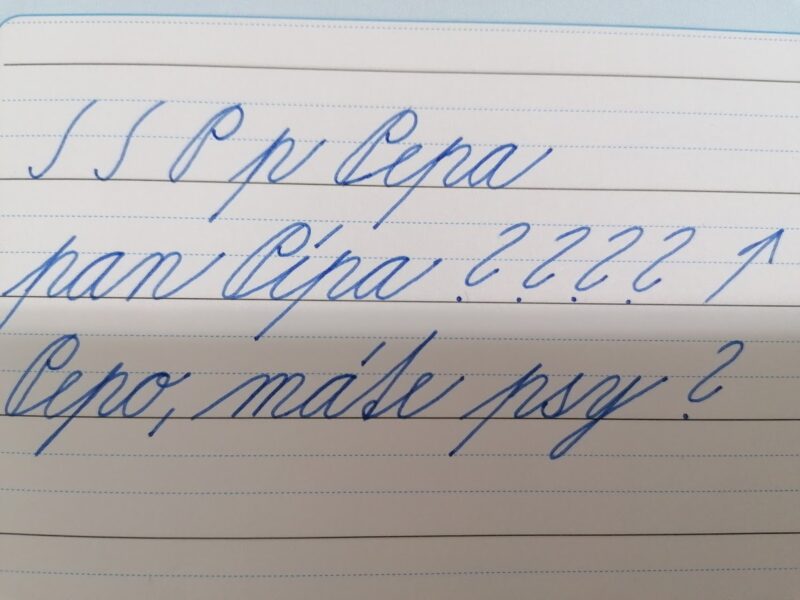 ∫ ∫ P p Pepa
pan Pípa ? ? ? ? ↑
Pepo, máte psy?